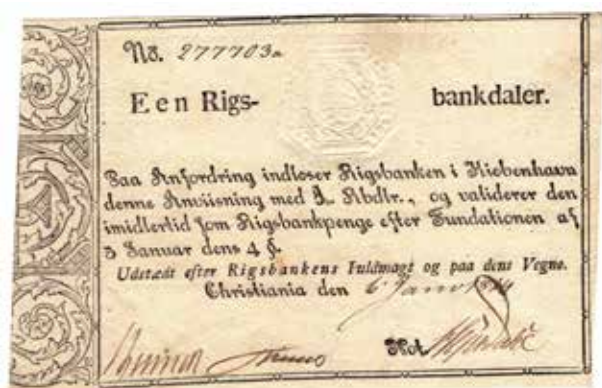 No. 277703
Een Rigs- bankdaler.
Paa Anfordring indløser Rigsbanken i Kiøbenhavn
denne Anviisning med 1 Rbdlr., og validerer den
imidlertid som Rigsbankpenge efter Fundationen af
5 Januar dens 4 §.
Udstædt efter Rigsbankens Fuldmagt og paa dens Vegne.
Christiania den 6 Janv 1814
Not